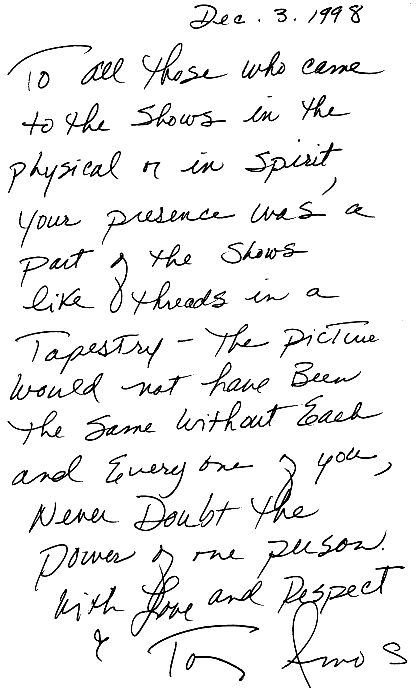 Dec. 3. 1998
To all those who came
to the Shows in the
physical or in Spirit,
your presence was a
part of the Shows
like threads in a
Tapestry - The picture
would not have Been
the Same without Each
and Every one of you,
Never Doubt the
power of one person.
With Love and Respect
Tori Amos